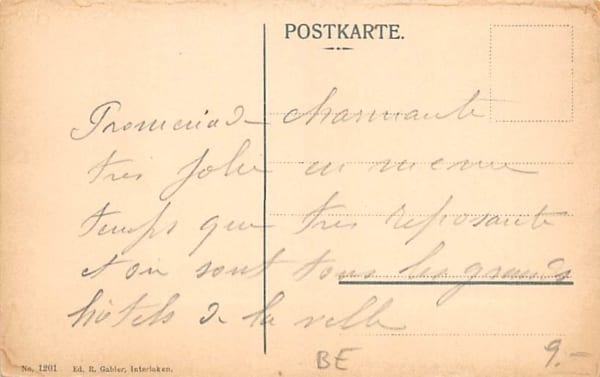 POSTKARTE.
Promenad charmante
très jolie en même
temps que très reposante
et où sont tous les grands
hôtels de la ville
No. 1201 Ed. R. Gabler, Interlaken.
BE 9.-